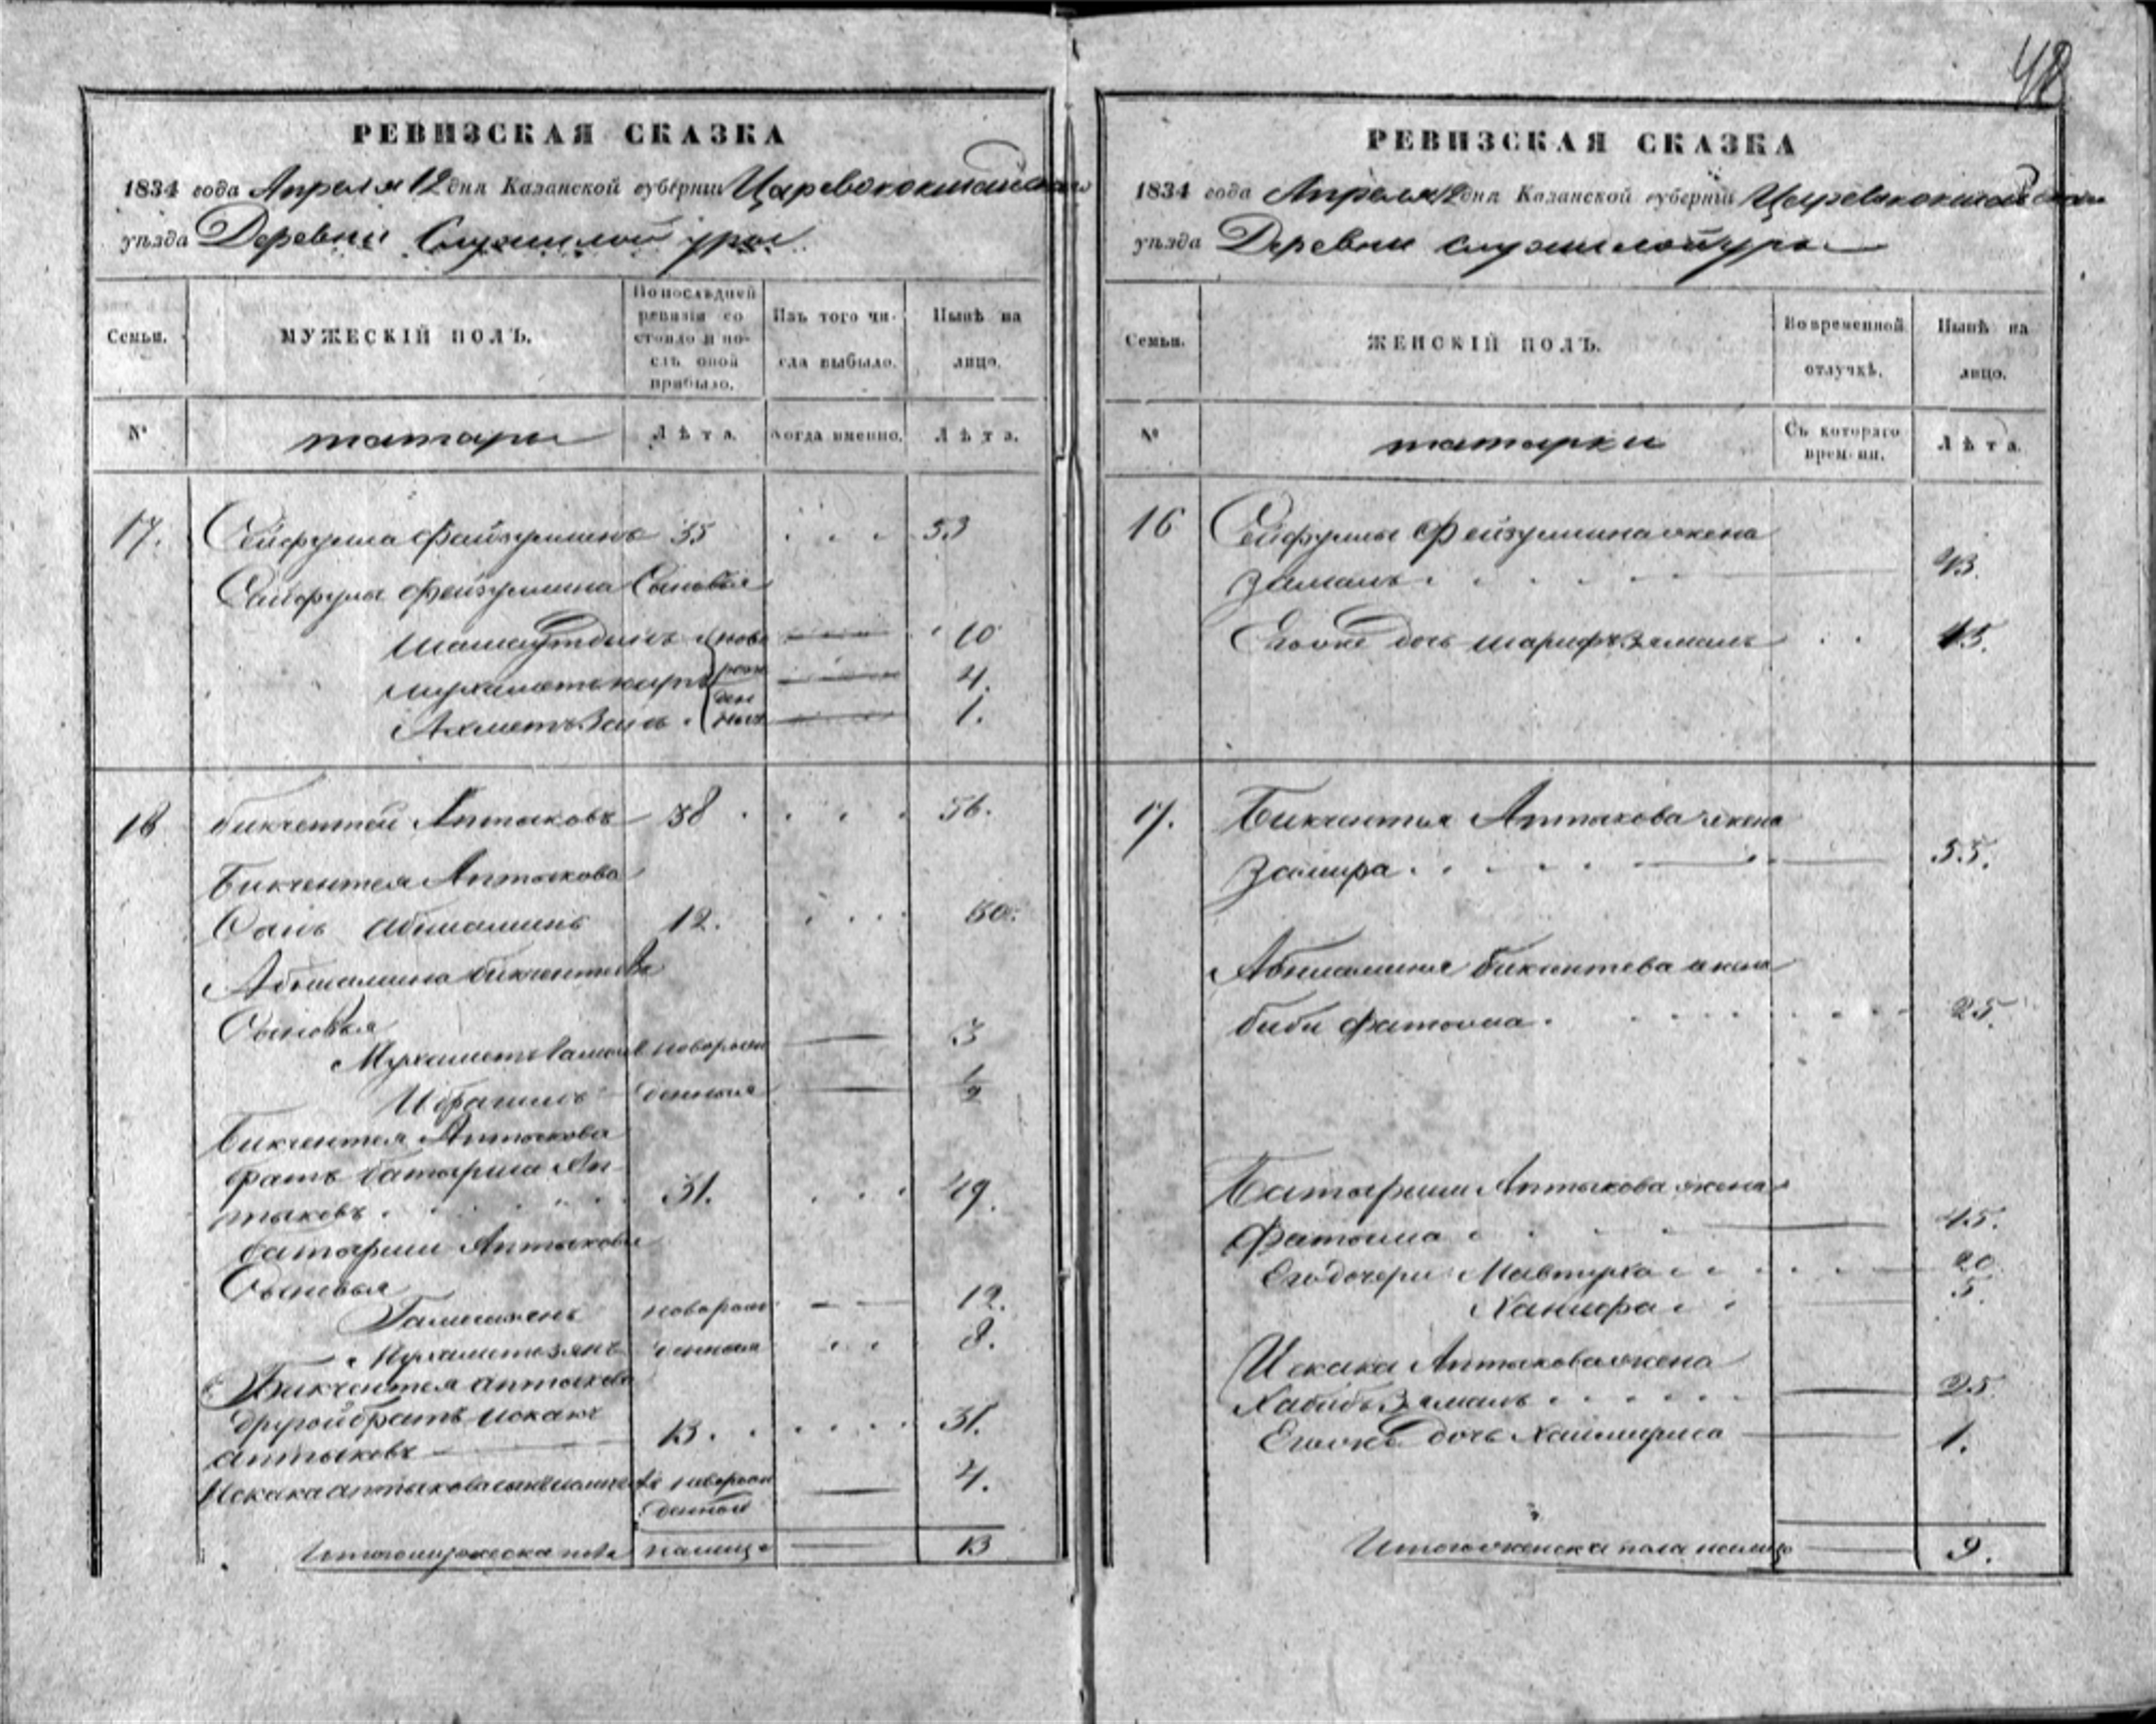 48
РЕВИЗСКАЯ СКАЗКА
1834 года Апреля 12 дня Казанской губерніи Царевококшайскаго
уѣзда Деревни Служилой уры
Семьи.
МУЖЕСКІЙ ПОЛЪ.
По послѣдней ревизіи состояло и послѣ оной прибыло.
Изъ того числа выбыло.
Нынѣ на лицо.
№
татары
Лѣта.
Когда именно.
Лѣта.
17. Сейфулла Файзуллинъ 35 53
Сайфулы Фейзуллина Сыновья
ново 10
рож 4.
ден
Ахметъ ные 1.
18 бикчентей Аптыковъ 38 56.
Бикчентея Аптыкова
Сынъ абдиаминъ 12. 30.
бикчентеева
Сыновья
новорож 3
Ибрагимъ денныя 1/2
бикчентея Аптыкова
братъ батырша Ап
тыковъ 31. 49.
батырши Аптыкова
Сыновья
новорож 12.
Мухаметзянъ денныя 8.
Бикчентея аптыкова
другой братъ Искакъ
аптыковъ 13. 31.
Искака аптыкова новорож 4.
денной
Итого мужеска пола налицо 13
РЕВИЗСКАЯ СКАЗКА
1834 года Апреля 12 дня Казанской губерніи Царевококшайскаго
уѣзда Деревни служилой уры
Семьи.
ЖЕНСКІЙ ПОЛЪ.
Во временной отлучкѣ.
Нынѣ на лицо.
№
татарки
Съ котораго времени.
Лѣта.
16 Сейфуллы Фейзуллина жена
Замалъ 43.
Еговже дочь шарифъ Земалъ 15.
17. Бикчентея Аптыкова жена
Замира 55.
бикчентева жена
биби фатыма 25.
Батырши Аптыкова жена
Фатыма 45.
Его дочери 20
Ханифа 5.
Искака Аптыкова жена
Хабибъ Земалъ 25.
Еговже дочь 1.
Итого женска пола налицо 9.